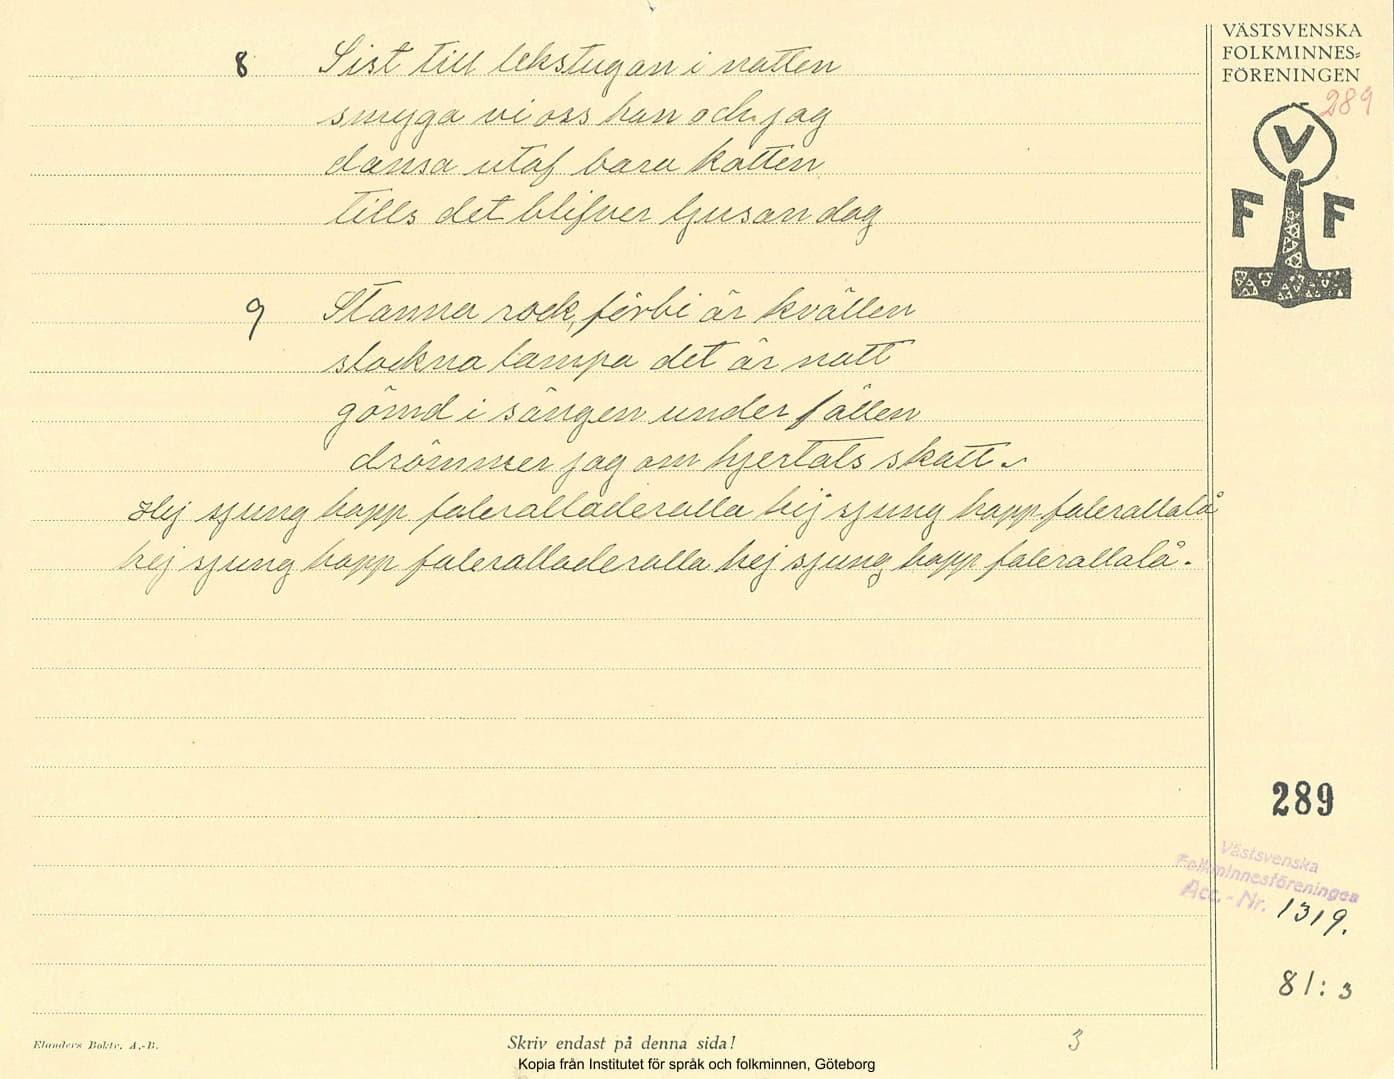 VÄSTSVENSKA
FOLKMINNES=
FÖRENINGEN
289
V
F F
8 Sist till lekstugan i natten
smyga vi oss han och jag
dansa utaf bara katten
tills det blifver ljusan dag
9 Stanna rock, förbi är kvällen
slockna lampa det är natt
gömd i sängen under fällen
drömmer jag om hjertats skatt.
Hej sjung hopp faleralladeralla hej sjung hopp falerallalå
hej sjung hopp faleralladeralla hej sjung hopp falerallalå.
289
Västsvenska
Folkminnesföreningen
Acc.-Nr. 1319.
81:3
Elanders Boktr. A.-B.
Skriv endast på denna sida!
3
Kopia från Institutet för språk och folkminnen, Göteborg